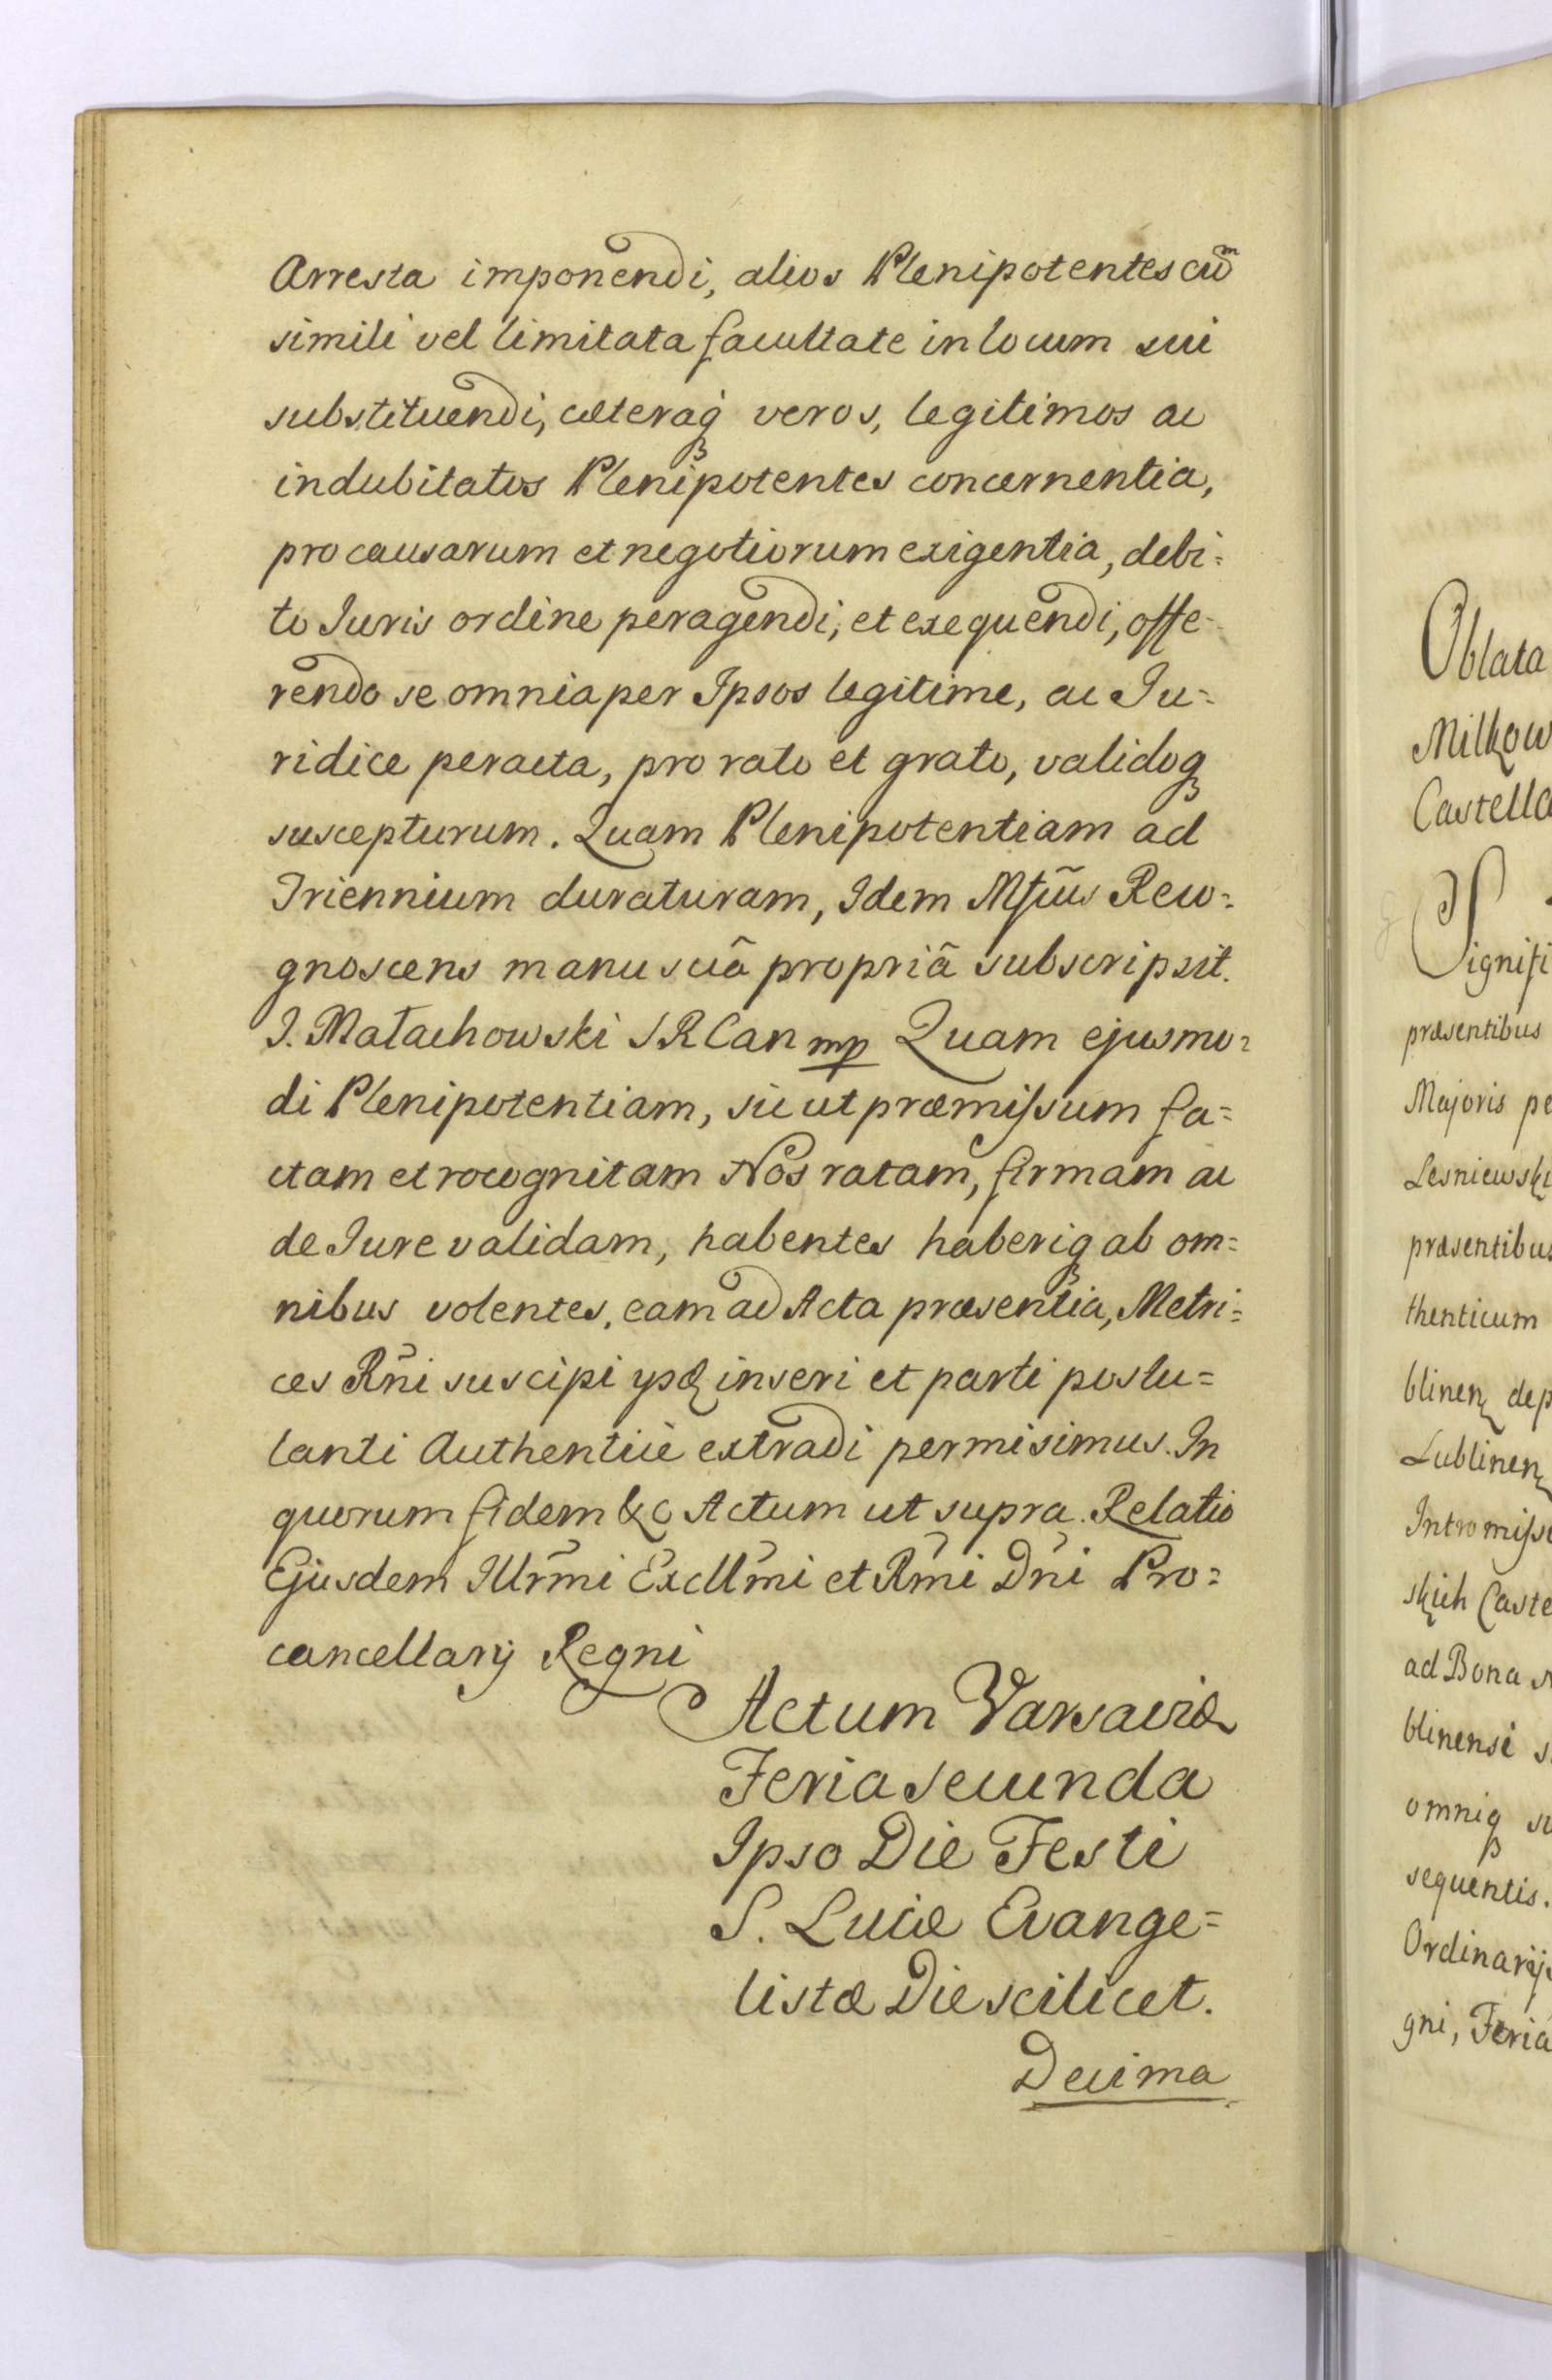 Arresta imponendi, alios Plenipotentes cũm
simili vel limitata facultate in locum sui
substituendi, cæteraq̃ veros, legitimos ac
indubitatos Plenipotentes concernentia,
pro causarum et negotiorum exigentia, debi=
to Iuris ordine peragendi, et exequendi, offe-
rendo se omnia per Ipsos legitime, ac Iu=
ridice peracta, pro rato et grato, validoq
suscepturum. Quam Plenipotentiam ad
Triennium duraturam, Idem Mſſus Reco=
gnoscens manu suã propriã subscripsit.
I. Małachowski SRCan mp Quam ejusmo=
di Plenipotentiam, sicut præmiſsum fa=
ctam et rocognitam Nos ratam, firmam ac
de Iure validam, habentes haberiq ab om=
nibus volentes, eam ad Acta præsentia, Metri=
ces Rñi suscipi ysq inseri et parti postu=
lanti Authentice extradi permisimus. In
quorum fidem &c Actum ut supra. Relatio
Ejusdem Illrm̃i Excllm̃i et Rm̃i Dñi Pro=
cancellarij Regni
Actum Varsaviæ
Feria secunda
Ipso Die Festi
S. Lucæ Evange=
listæ Die scilicet.
Decima
Oblata
Milkow
Castella
Signifi
præsentibus
Majoris pe
Lesniewski
præsentibus
thenticum
blinen dep
Lublinen
Intromiſsi
skich Caste
ad Bona
blinensi s
omniq su
sequentis.
Ordinarij
gni, Feria